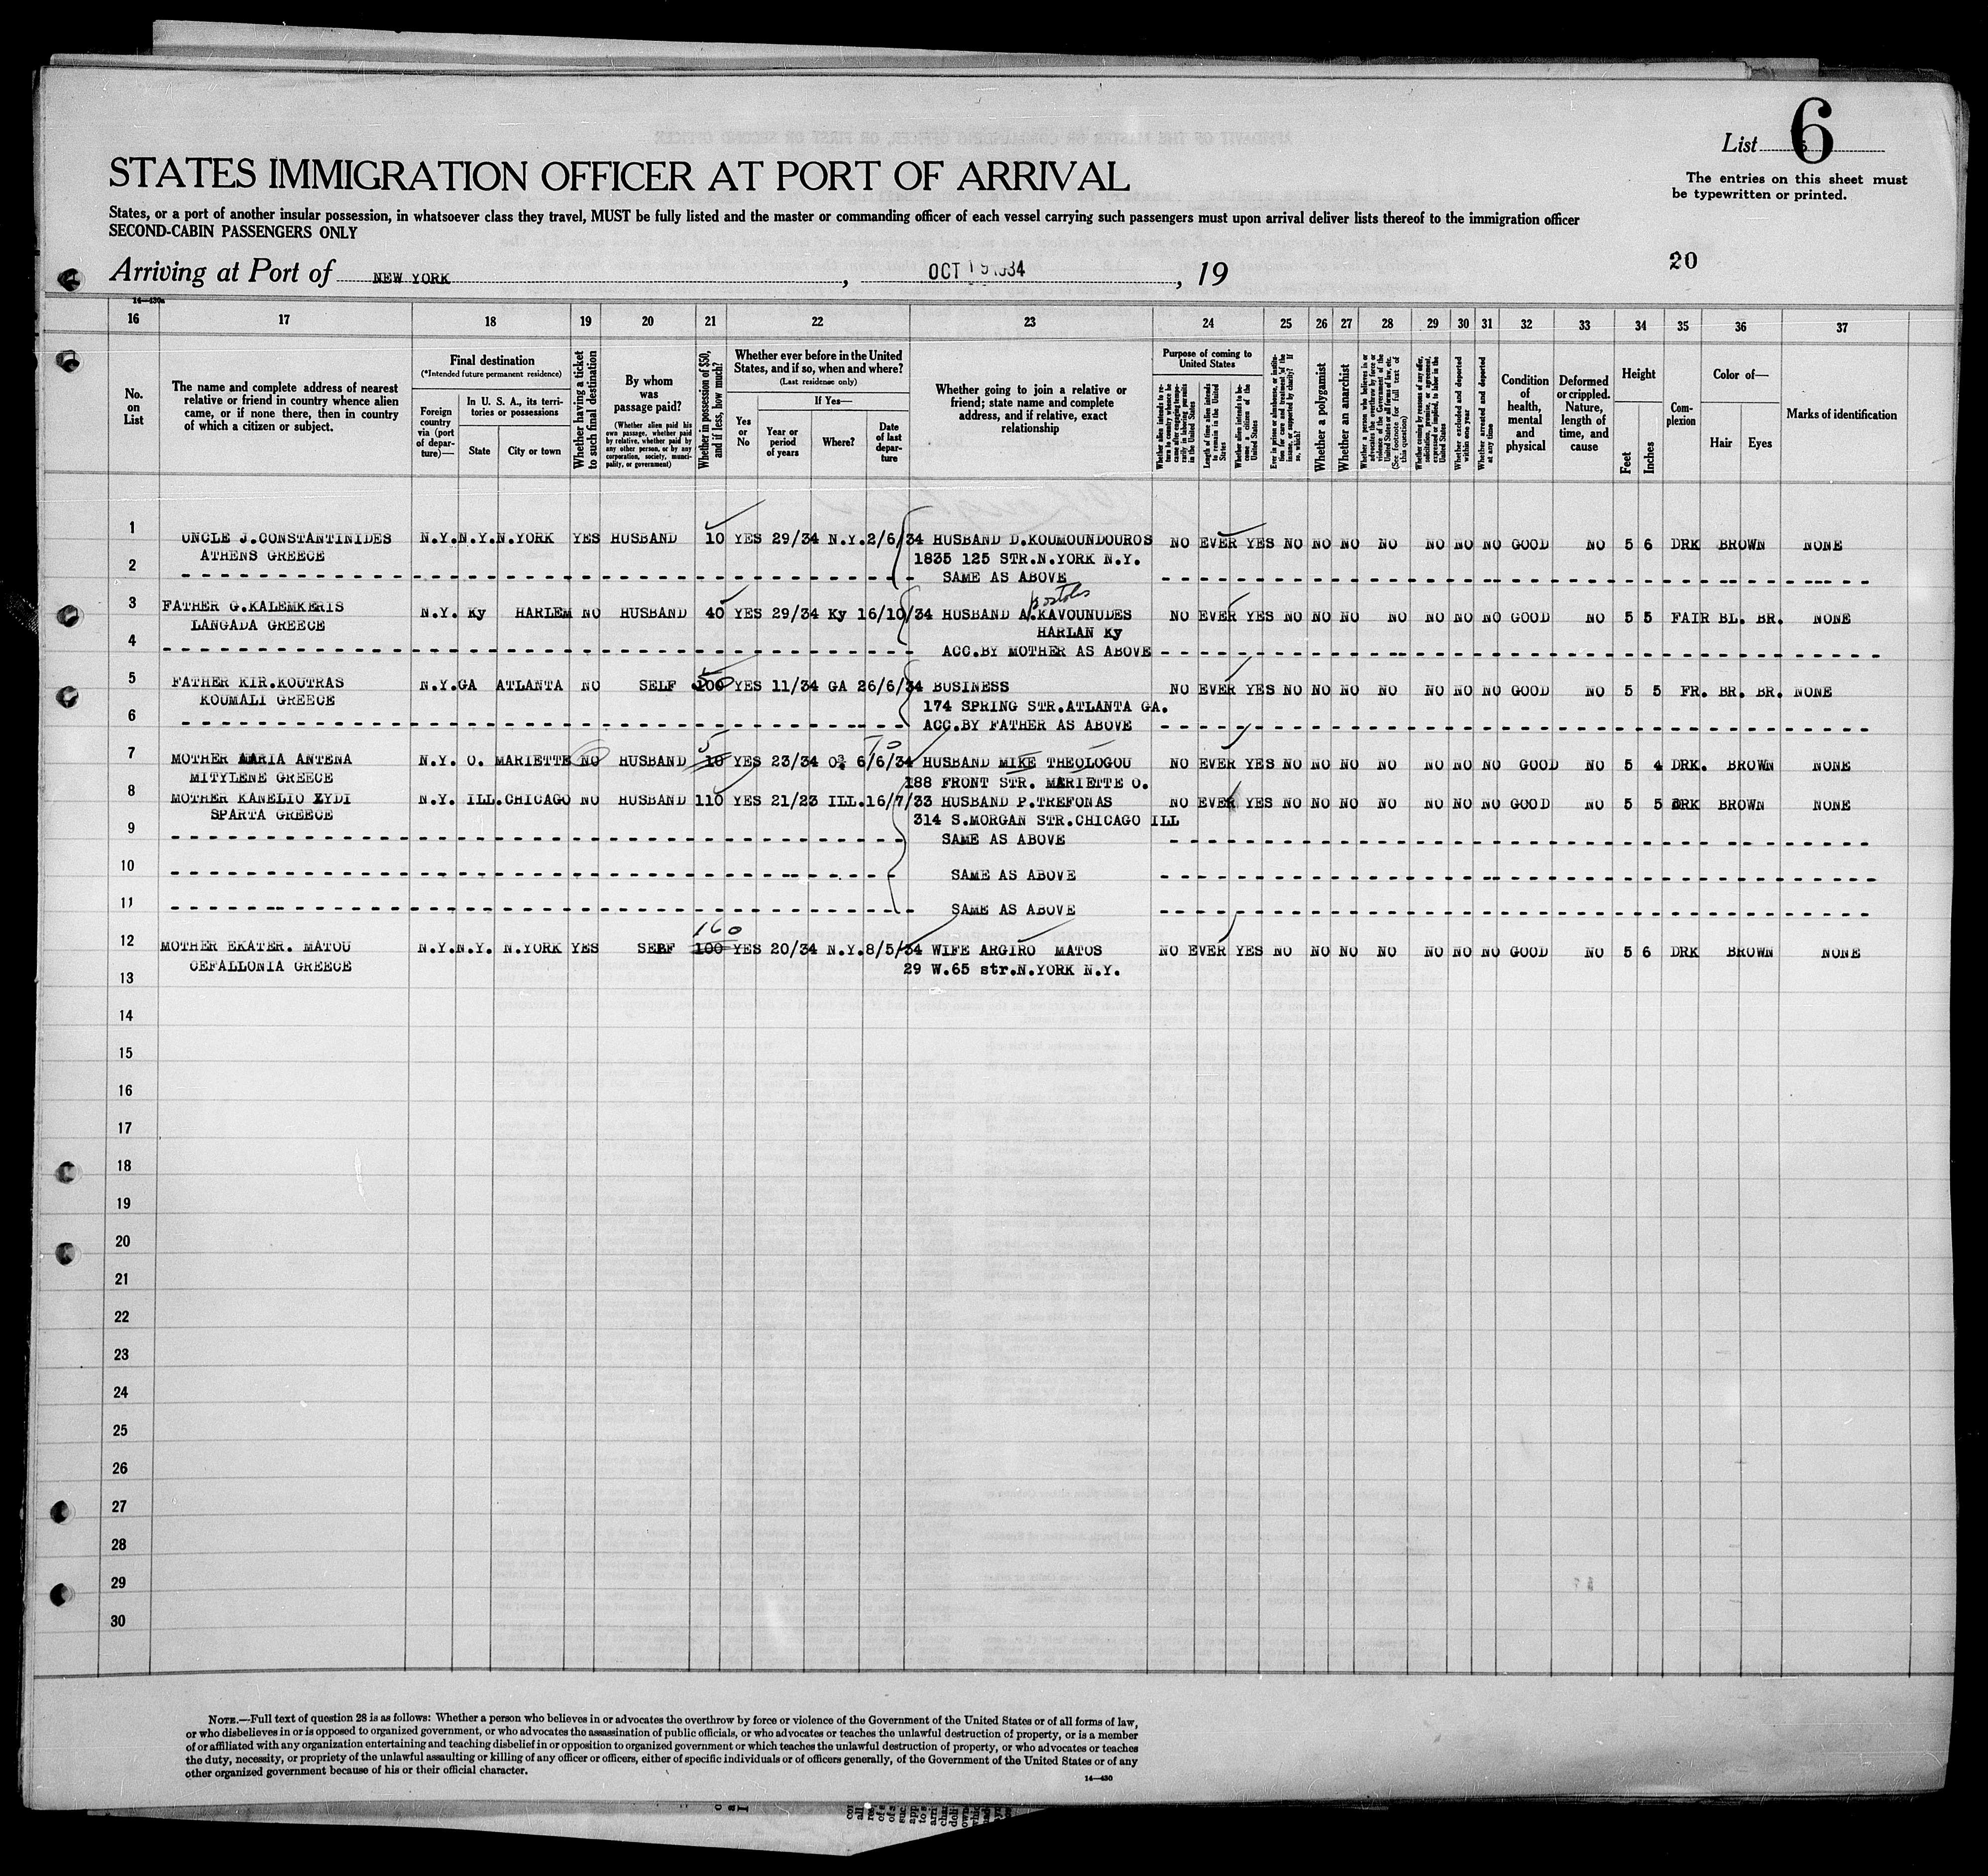 List 6
The entries on this sheet must
be typewritten or printed.
STATES IMMIGRATION OFFICER AT PORT OF ARRIVAL
States, or a port of another insular possession, in whatsoever class they travel, MUST be fully listed and the master or commanding officer of each vessel carrying such passengers must upon arrival deliver lists thereof to the immigration officer
SECOND-CABIN PASSENGERS ONLY
Arriving at Port of NEW YORK, OCT 19 1934, 19
20
16—430a
16 17 18 19 20 21 22 23 24 25 26 27 28 29 30 31 32 33 34 35 36 37
No. on List
The name and complete address of nearest relative or friend in country whence alien came, or if none there, then in country of which a citizen or subject.
Final destination
(*Intended future permanent residence)
Foreign country via (port of departure)—
In U. S. A., its territories or possessions
State
City or town
Whether having a ticket to such final destination
By whom was passage paid?
(Whether alien paid his own passage, whether paid by relative, whether paid by any other person, or by any corporation, society, municipality, or government)
Whether in possession of $50, and if less, how much?
Whether ever before in the United States, and if so, when and where?
(Last residence only)
Yes or No
If Yes—
Year or period of years
Where?
Date of last departure
Whether going to join a relative or friend; state name and complete address, and if relative, exact relationship
Purpose of coming to United States
Whether alien intends to return to country whence he came after engaging temporarily in laboring pursuits in the United States
Length of time alien intends to remain in the United States
Whether alien intends to become a citizen of the United States
Ever in prison or almshouse, or institution for care and treatment of the insane, or supported by charity? If so, which?
Whether a polygamist
Whether an anarchist
Whether a person who believes in or advocates the overthrow by force or violence of the Government of the United States or all forms of law, etc. (See footnote for full text of this question)
Whether coming by reason of any offer, solicitation, promise, or agreement, expressed or implied, to labor in the United States
Whether excluded and deported within one year
Whether arrested and deported at any time
Condition of health, mental and physical
Deformed or crippled. Nature, length of time, and cause
Height
Feet
Inches
Complexion
Color of—
Hair
Eyes
Marks of identification
1 UNCLE J.CONSTANTINIDES N.Y. N.Y. N.YORK YES HUSBAND 10 YES 29/34 N.Y. 2/6/34 HUSBAND D.KOUMOUNDOUROS NO EVER YES NO NO NO NO NO NO NO GOOD NO 5 6 DRK BROWN NONE
ATHENS GREECE 1835 125 STR.N.YORK N.Y.
2 SAME AS ABOVE
postolos
3 FATHER G.KALEMKERIS N.Y. Ky HARLEM NO HUSBAND 40 YES 29/34 Ky 16/10/34 HUSBAND A.KAVOUNUDES NO EVER YES NO NO NO NO NO NO NO GOOD NO 5 5 FAIR BL. BR. NONE
LANGADA GREECE HARLAN Ky
4 ACC.BY MOTHER AS ABOVE
5 FATHER KIR.KOUTRAS N.Y. GA ATLANTA NO SELF 100 YES 11/34 GA 26/6/34 BUSINESS NO EVER YES NO NO NO NO NO NO NO GOOD NO 5 5 FR. BR. BR. NONE
KOUMALI GREECE 174 SPRING STR.ATLANTA GA.
6 ACC.BY FATHER AS ABOVE
5 10
7 MOTHER MARIA ANTENA N.Y. O. MARIETTE NO HUSBAND 10 YES 23/34 O. 6/6/34 HUSBAND MIKE THEOLOGOU NO EVER YES NO NO NO NO NO NO NO GOOD NO 5 4 DRK. BROWN NONE
MITYLENE GREECE 188 FRONT STR. MARIETTE O.
8 MOTHER KANELIO ZYDI N.Y. ILL. CHICAGO NO HUSBAND 110 YES 21/23 ILL. 16/7/33 HUSBAND P.TREFONAS NO EVER YES NO NO NO NO NO NO NO GOOD NO 5 5 DRK BROWN NONE
SPARTA GREECE 314 S.MORGAN STR.CHICAGO ILL
9 SAME AS ABOVE
10 SAME AS ABOVE
11 SAME AS ABOVE
160
12 MOTHER EKATER. MATOU N.Y. N.Y. N.YORK YES SELF 100 YES 20/34 N.Y. 8/5/34 WIFE ARGIRO MATOS NO EVER YES NO NO NO NO NO NO NO GOOD NO 5 6 DRK BROWN NONE
CEFALLONIA GREECE 29 W.65 str.N.YORK N.Y.
13
14
15
16
17
18
19
20
21
22
23
24
25
26
27
28
29
30
NOTE.—Full text of question 28 is as follows: Whether a person who believes in or advocates the overthrow by force or violence of the Government of the United States or of all forms of law,
or who disbelieves in or is opposed to organized government, or who advocates the assassination of public officials, or who advocates or teaches the unlawful destruction of property, or is a member
of or affiliated with any organization entertaining and teaching disbelief in or opposition to organized government or which teaches the unlawful destruction of property, or who advocates or teaches
the duty, necessity, or propriety of the unlawful assaulting or killing of any officer or officers, either of specific individuals or of officers generally, of the Government of the United States or of any
other organized government because of his or their official character.
14—430